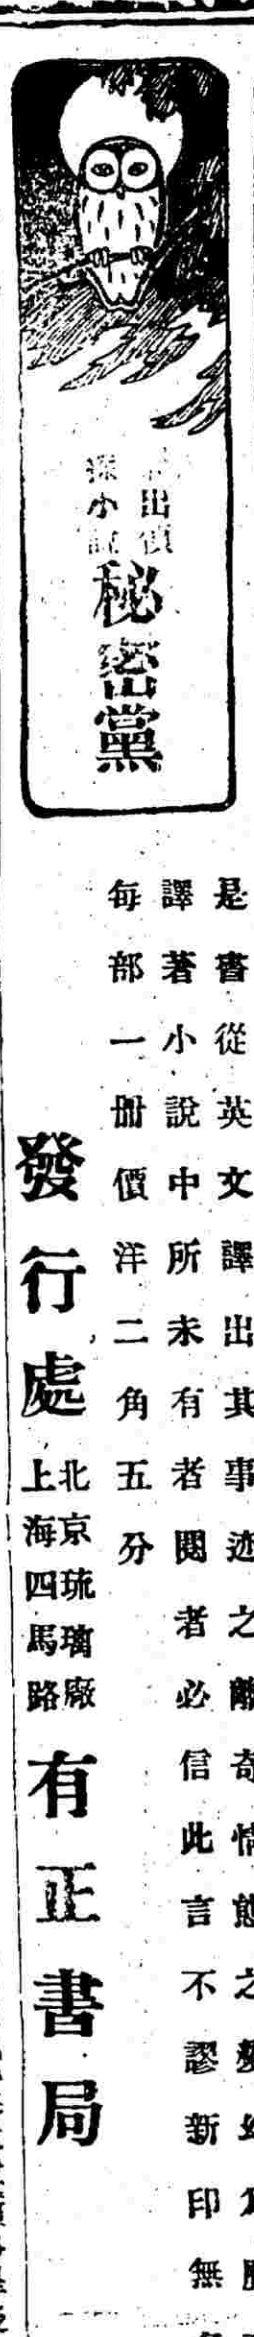 出價
探小說
秘密黨
是書從英文譯出其事迹之離奇情態之變幻為
譯著小說中所未有者閱者必信此言不謬新印無
每部一冊價洋二角五分
發行處
北京琉璃廠
上海四馬路
有正書局